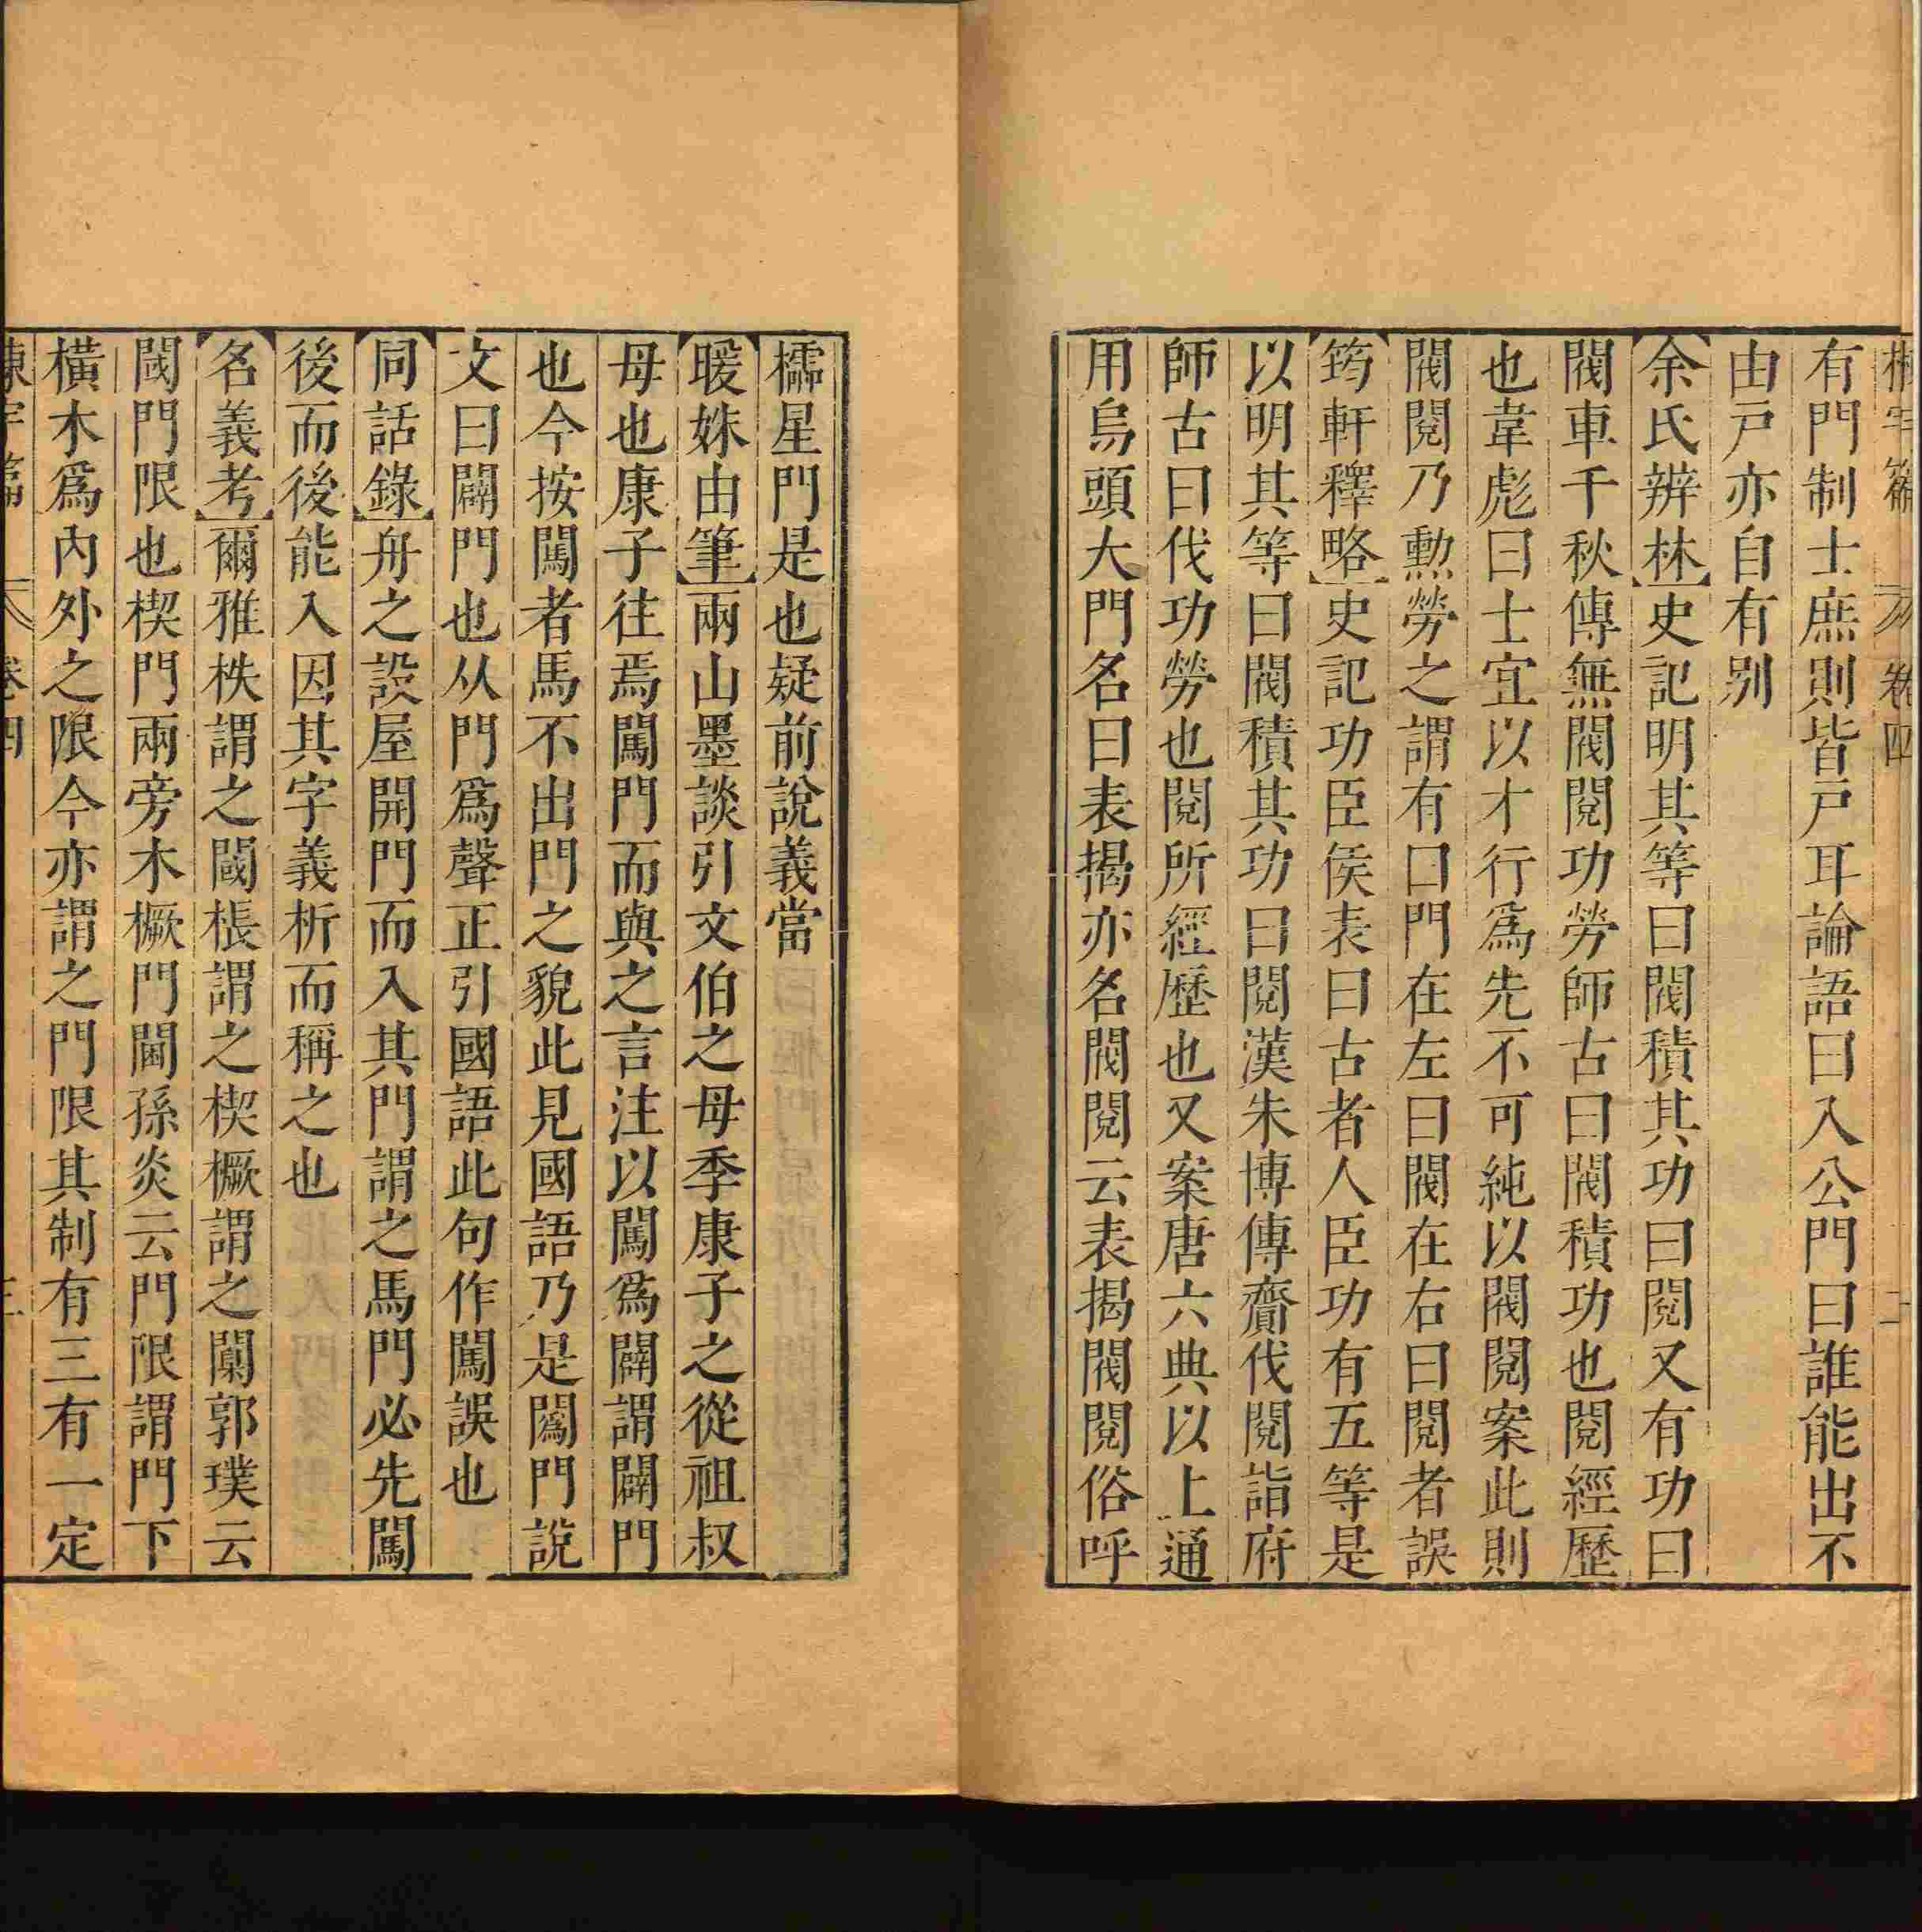 卷四 二
有門制士庶則皆戸耳論語曰入公門曰誰能出不
由戸亦自有别
余氏辨林史記明其等曰閥積其功曰閱又有功曰
閥車千秋傳無閥閱功勞師古曰閥積功也閱經歷
也韋彪曰士宜以才行爲先不可純以閥閱案此則
閥閱乃勲勞之謂有曰門在左曰閥在右曰閱者誤
筠軒釋略史記功臣侯表曰古者人臣功有五等是
以明其等曰閥積其功曰閱漢朱博傳齎伐閱詣府
師古曰伐功勞也閱所經歷也又案唐六典以上通
用烏頭大門名曰表揭亦名閥閱云表揭閥閱俗呼
櫺星門是也疑前說義當
暖姝由筆兩山墨談引文伯之母季康子之從祖叔
母也康子往焉闖門而與之言注以闖爲闢謂闢門
也今按闖者馬不出門之貌此見國語乃是闖門說
文曰闢門也从門爲聲正引國語此句作闖誤也
同話錄舟之設屋開門而入其門謂之馬門必先闖
後而後能入因其字義析而稱之也
名義考爾雅柣謂之閾棖謂之楔橛謂之闑郭璞云
閾門限也楔門兩旁木橛門閫孫炎云門限謂門下
橫木爲內外之限今亦謂之門限其制有三有一定
卷四 三